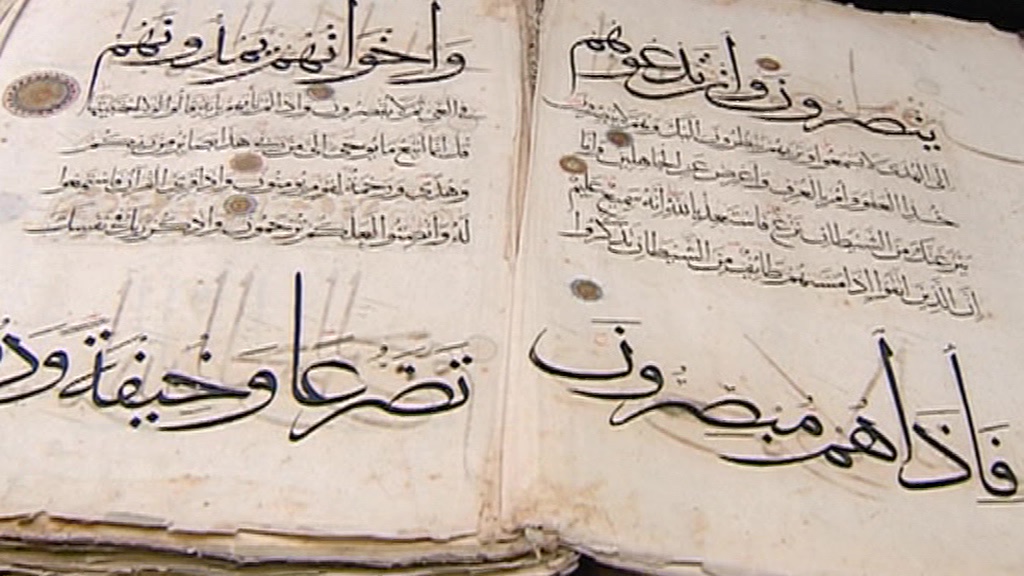 ينصرون وان تدعوهم
الى الهدى لا يسمعوا وتريهم ينظرون اليك وهم لا يبصرون
خذ العفو وأمر بالعرف واعرض عن الجاهلين واما
ينزغنك من الشيطان نزغ فاستعذ بالله انه سميع عليم
ان الذين اتقوا اذا مسهم طائف من الشيطان تذكروا
فاذا هم مبصرون
واخوانهم يمدونهم
في الغي ثم لا يقصرون واذا لم تأتهم بآية قالوا لولا اجتبيتها
قل انما اتبع ما يوحى الي من ربي هذا بصائر من ربكم
وهدى ورحمة لقوم يؤمنون واذا قرئ القرآن فاستمعوا
له وانصتوا لعلكم ترحمون واذكر ربك في نفسك
تضرعا وخيفة ودو